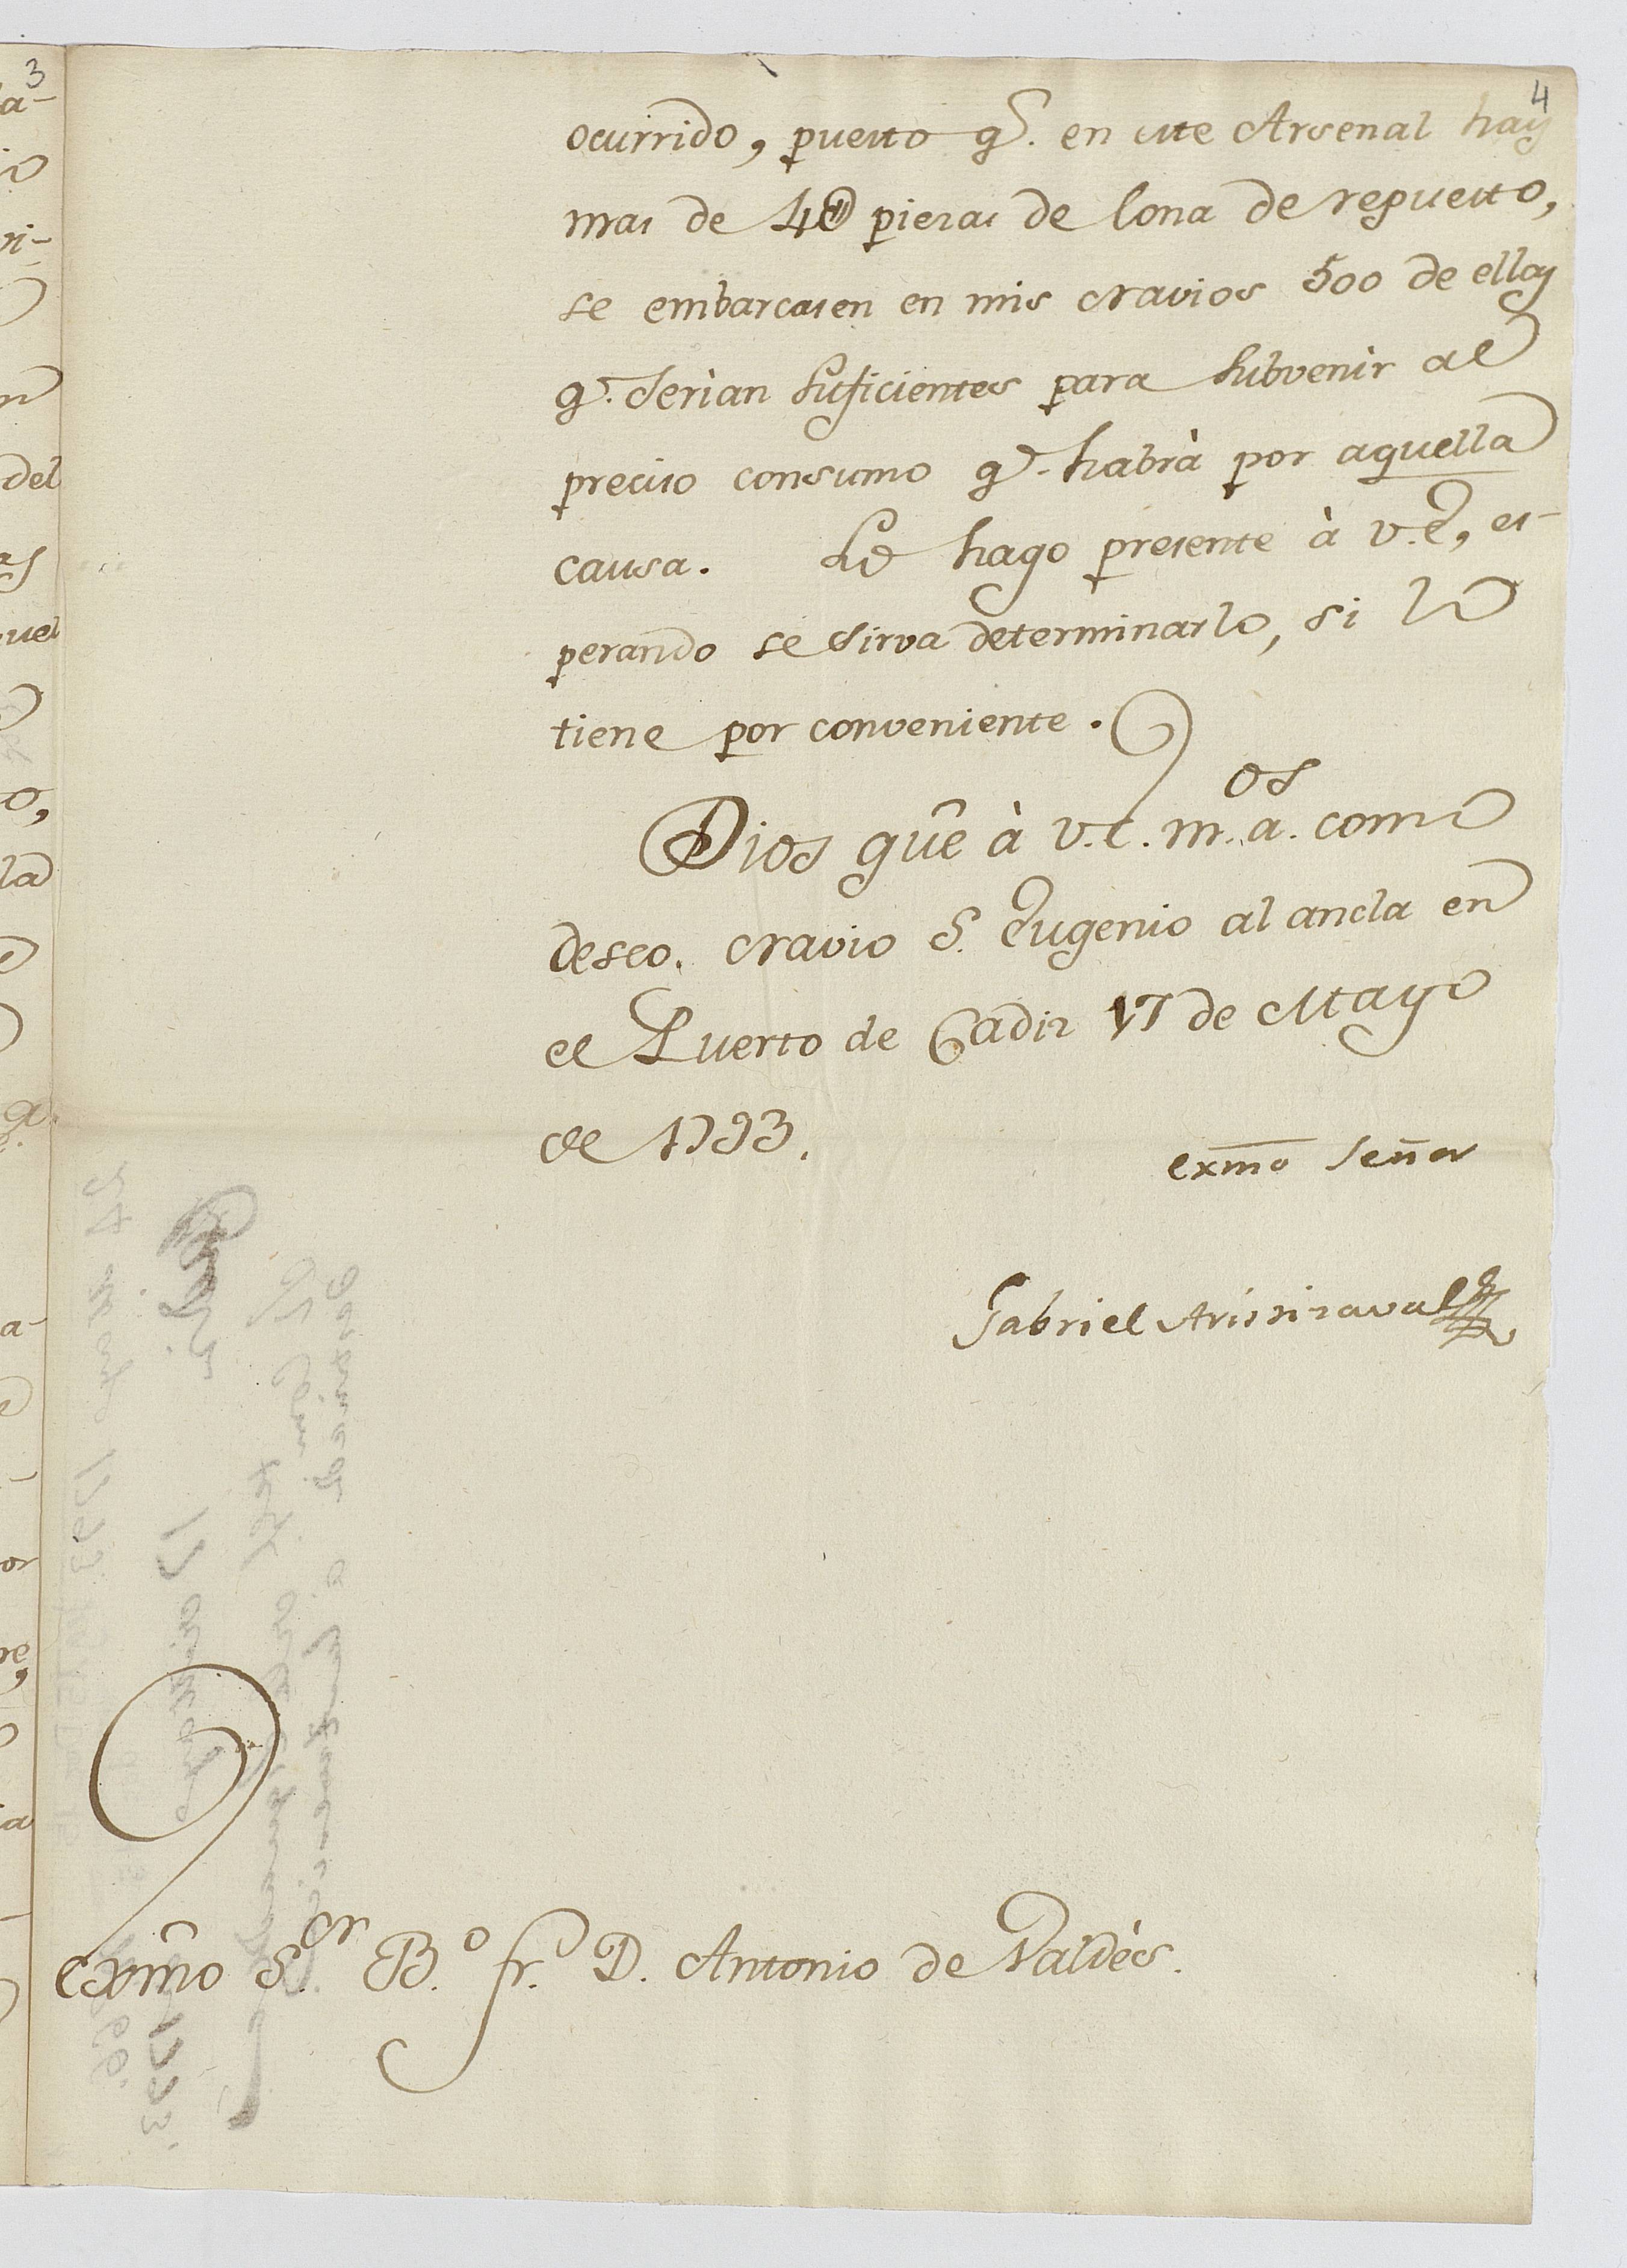 4
ocurrido, puesto q.e en este Arsenal hay
mas de 4@ piezas de lona de repuesto,
se embarcasen en mis Navios 500 de ellas
q.e serìan suficientes para subvenir al
preciso consumo q.e habrà por aquella
causa. Lo hago presente à V.E, es-
perando se sirva determinarlo, si lo
tiene por conveniente.
Dios gũe à V.E. m.s a.os como
deseo. Navio S. Eugenio al ancla en
el Puerto de Cadiz 17 de Mayo
de 1793.
Exmõ Señor
Gabriel Aristizaval
Exmõ S.or B.o fr. D. Antonio de Valdès.
3